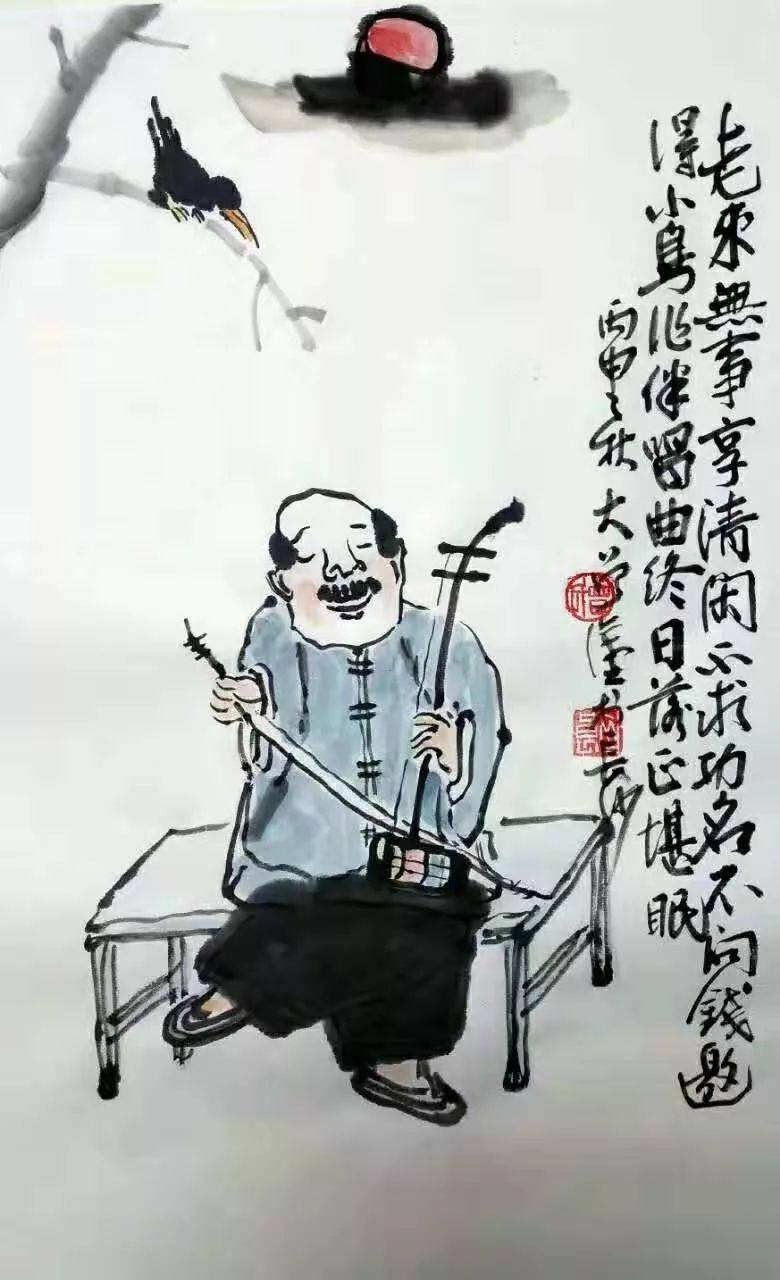 老來無事享清閑不求功名不问錢邀
得小鳥作伴習曲終日落正堪眠
丙申之秋大